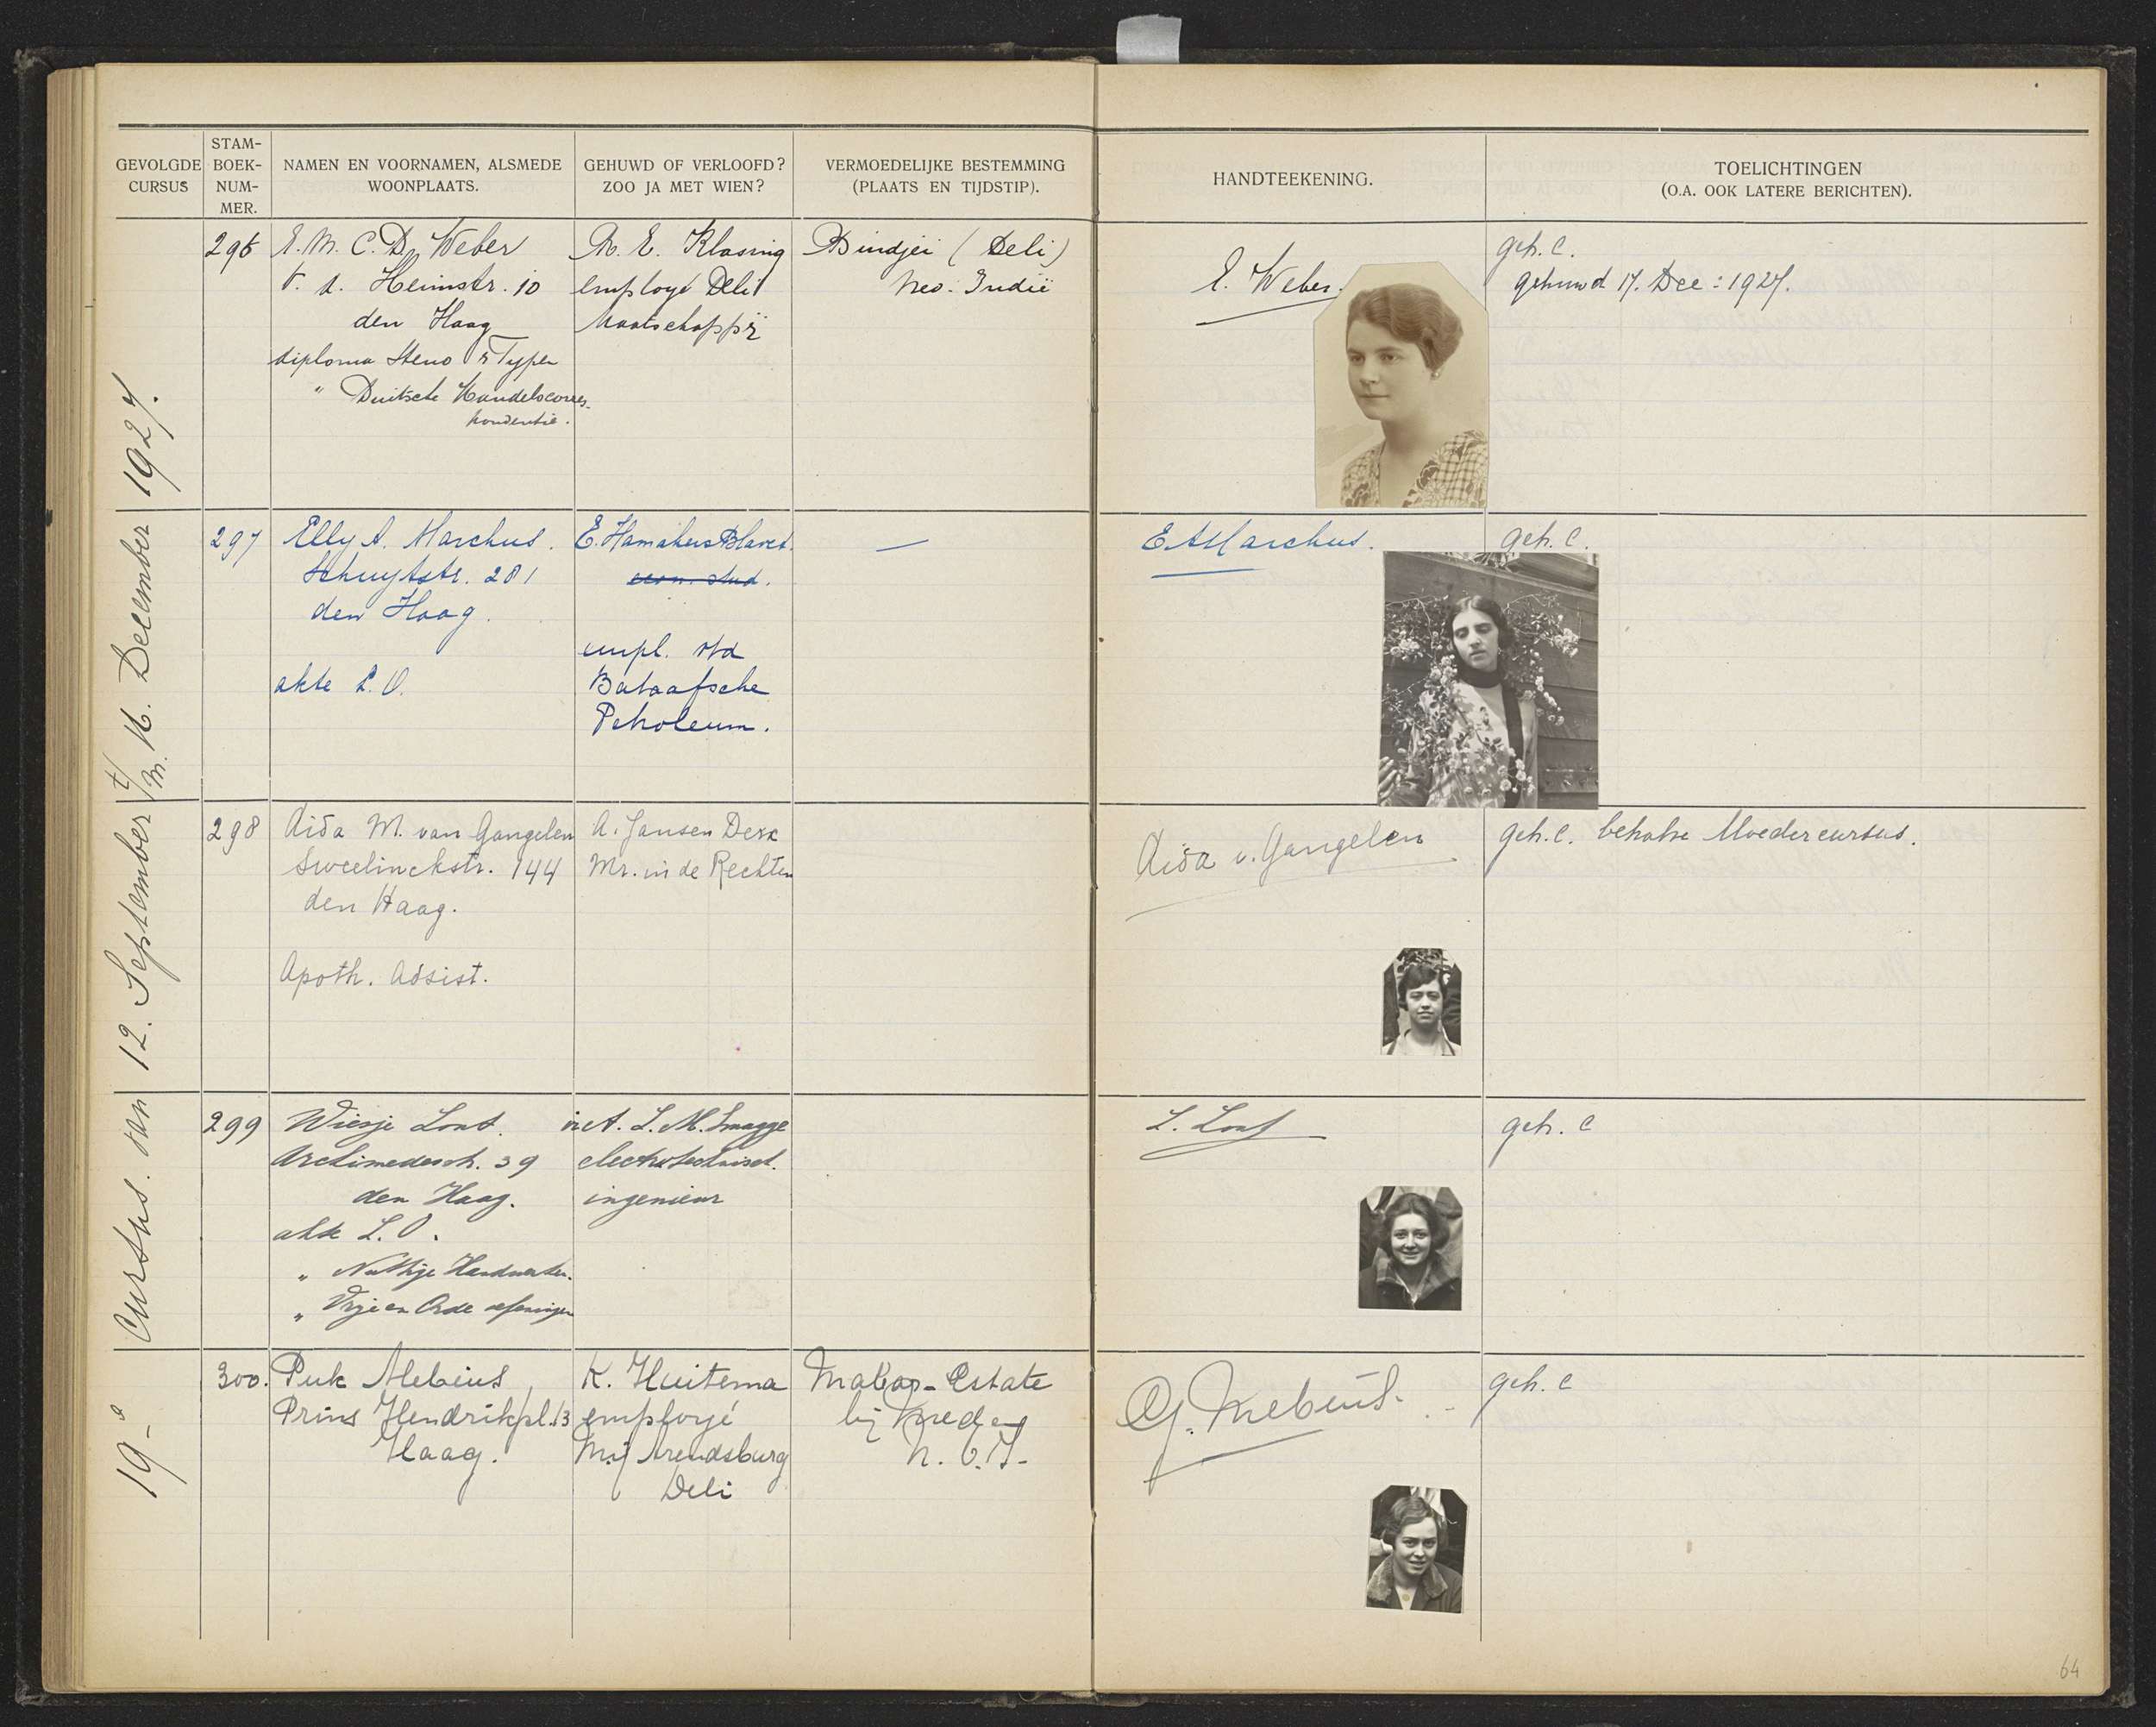 GEVOLGDE CURSUS
STAM-BOEK-NUM-MER.
NAMEN EN VOORNAMEN, ALSMEDE WOONPLAATS.
GEHUWD OF VERLOOFD? ZOO JA MET WIEN?
VERMOEDELIJKE BESTEMMING (PLAATS EN TIJDSTIP).
HANDTEEKENING.
TOELICHTINGEN (O.A. OOK LATERE BERICHTEN).
19e Cursus van 12 September t/m. 16. December 1927.
296
E. M. C. D. Weber
v. d. Heimstr. 10
den Haag
diploma Steno & Typen
" Duitsche Handelscorres-
pondentie.
E. Klasing
employé Deli
Maatschappij
Bindjei (Deli)
Ned. Indië
E. Weber.
geh. C.
gehuwd 17. Dec: 1927.
297
Elly A. Marchus.
Schuytstr. 281
den Haag.
akte L.O.
E. Hamakers
econ. stud.
empl. v/d
Bataafsche
Petroleum.
—
E A Marchus.
geh. C.
298
Aida M. van Gangelen
Sweelinckstr. 144
den Haag.
Apoth. Assist.
A. Jansen Derx
Mr. in de Rechten
Aida v. Gangelen
geh. C. behalve Moedercursus.
299
Wiesje Lont.
Archimedesstr. 39
den Haag.
akte L.O.
" Nuttige Handwerken.
" Vrije en Orde oefeningen
A. L. M. Smagge
electrotechnisch.
ingenieur
L. Lont
geh. C
300.
Puk Mebius,
Prins Hendrikpl. 13
Haag.
K. Huitema
employé
Mij Arendsburg
Deli
Mabar-Estate
bij Medan
N. O. I.
G. Mebius.
geh. C
64